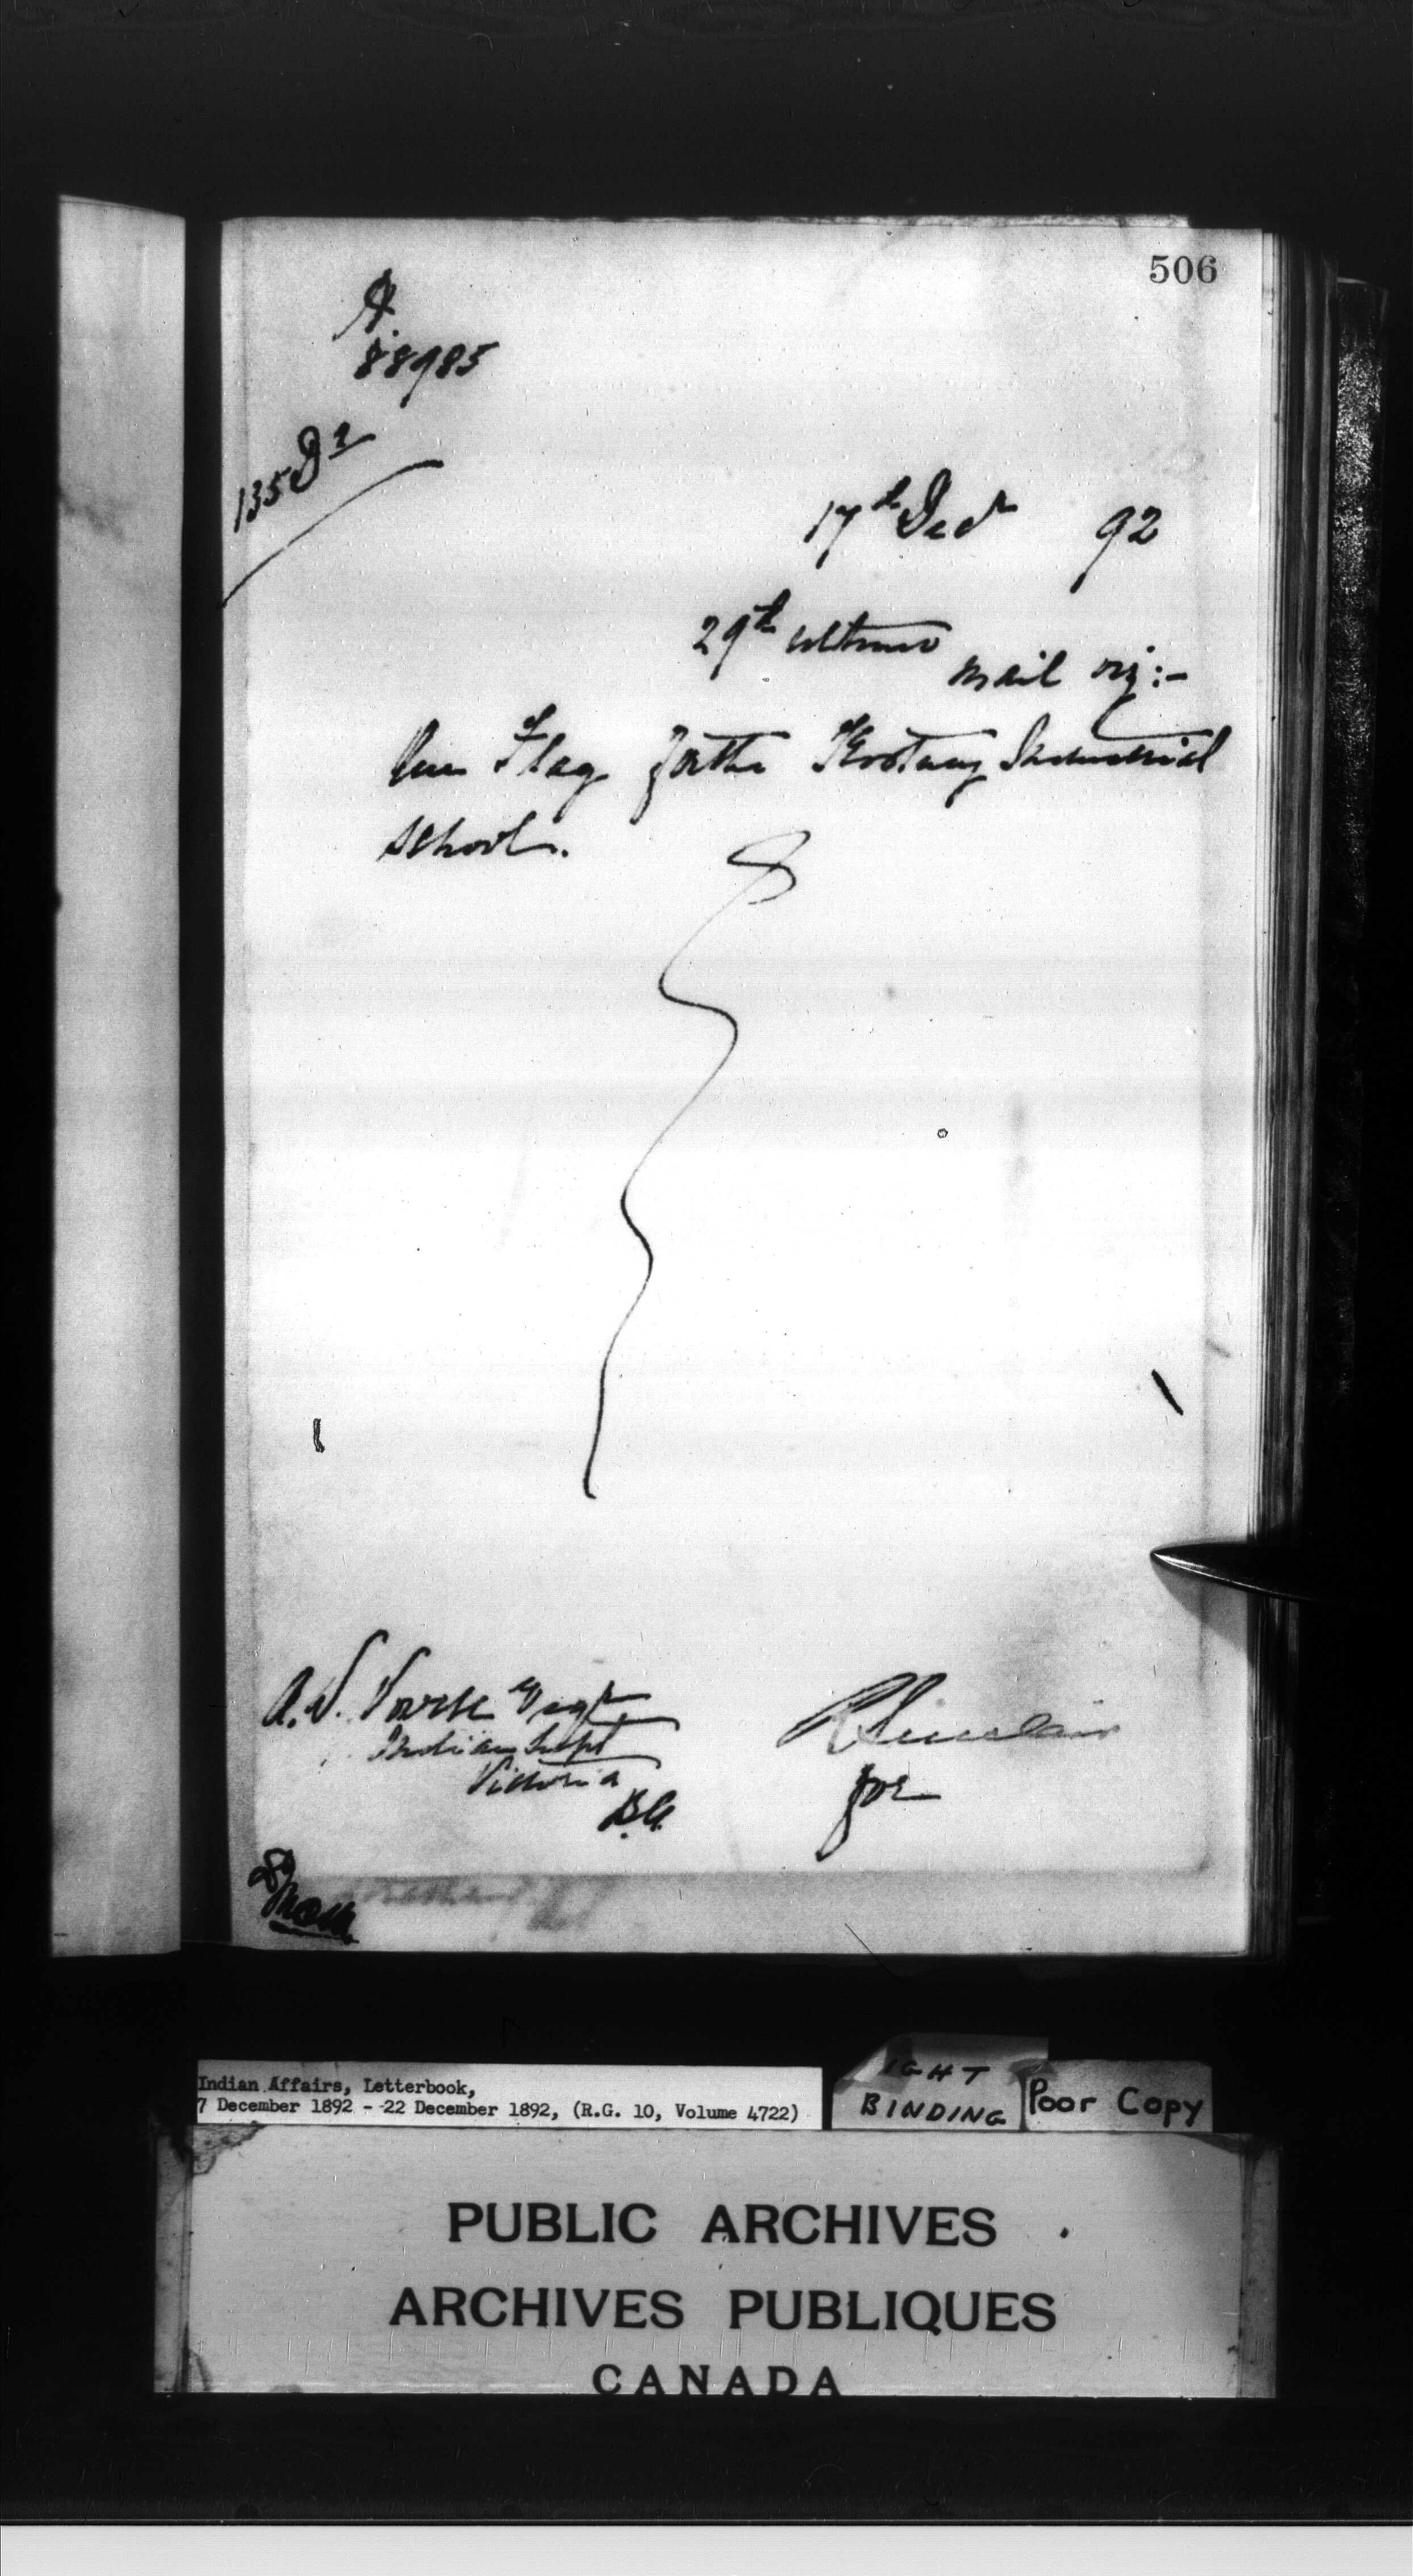 506
A.
88985
135 D2
17th Decr 92
29th ultimo
mail viz:-
One Flag for the Kootenay Industrial
School.
A. W. Vowell Esqr
Indian Supt
Victoria
B.C.
R Sinclair
for
Indian Affairs, Letterbook,
7 December 1892 - 22 December 1892, (R.G. 10, Volume 4722)
IGHT
BINDING
Poor Copy
PUBLIC ARCHIVES
ARCHIVES PUBLIQUES
CANADA